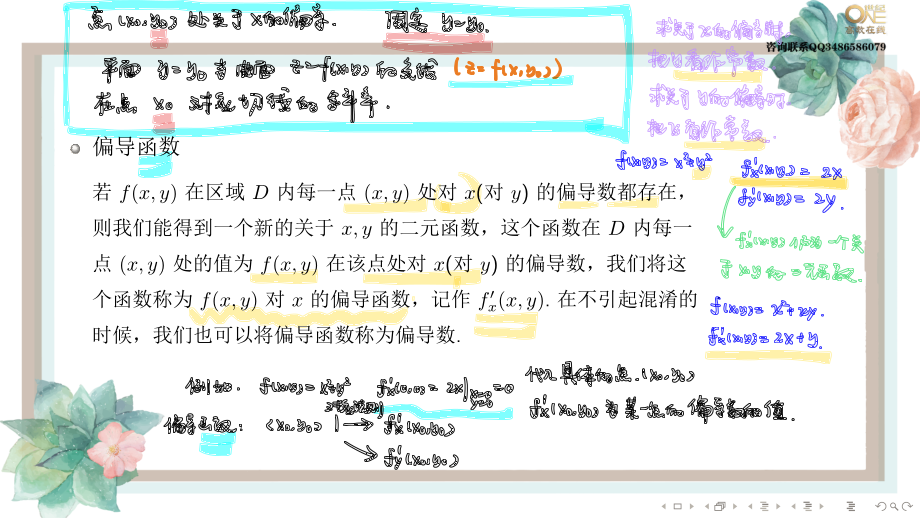 点(x₀,y₀)处关于x的偏导. 固定 y=y₀.
平面 y=y₀ 与曲面 z=f(x,y) 的交线 (z=f(x,y₀))
在点 x₀ 对应切线的斜率.
求关于x的偏导时
把y看作常数.
求关于y的偏导时
把x看作常数.
ONE
咨询联系QQ3486586079
偏导函数
若 f(x, y) 在区域 D 内每一点 (x, y) 处对 x(对 y) 的偏导数都存在，
则我们能得到一个新的关于 x, y 的二元函数，这个函数在 D 内每一
点 (x, y) 处的值为 f(x, y) 在该点处对 x(对 y) 的偏导数，我们将这
个函数称为 f(x, y) 对 x 的偏导函数，记作 f′ₓ(x, y). 在不引起混淆的
时候，我们也可以将偏导函数称为偏导数.
f(x,y)=x²+y²
f′x(x,y) = 2x
f′y(x,y) = 2y.
f′x(x,y) 仍为一个关
于 x,y 的二元函数.
f(x,y)=x²+xy.
f′x(x,y)=2x+y.
例如. f(x,y)=x²+y² f′x(0,0)= 2x|x=0 y=0 =0
偏导函数: (x₀,y₀) → f′x(x₀,y₀)
→ f′y(x₀,y₀)
代入具体的点.(x₀,y₀)
f′x(x₀,y₀) 为某一点的偏导数的值.